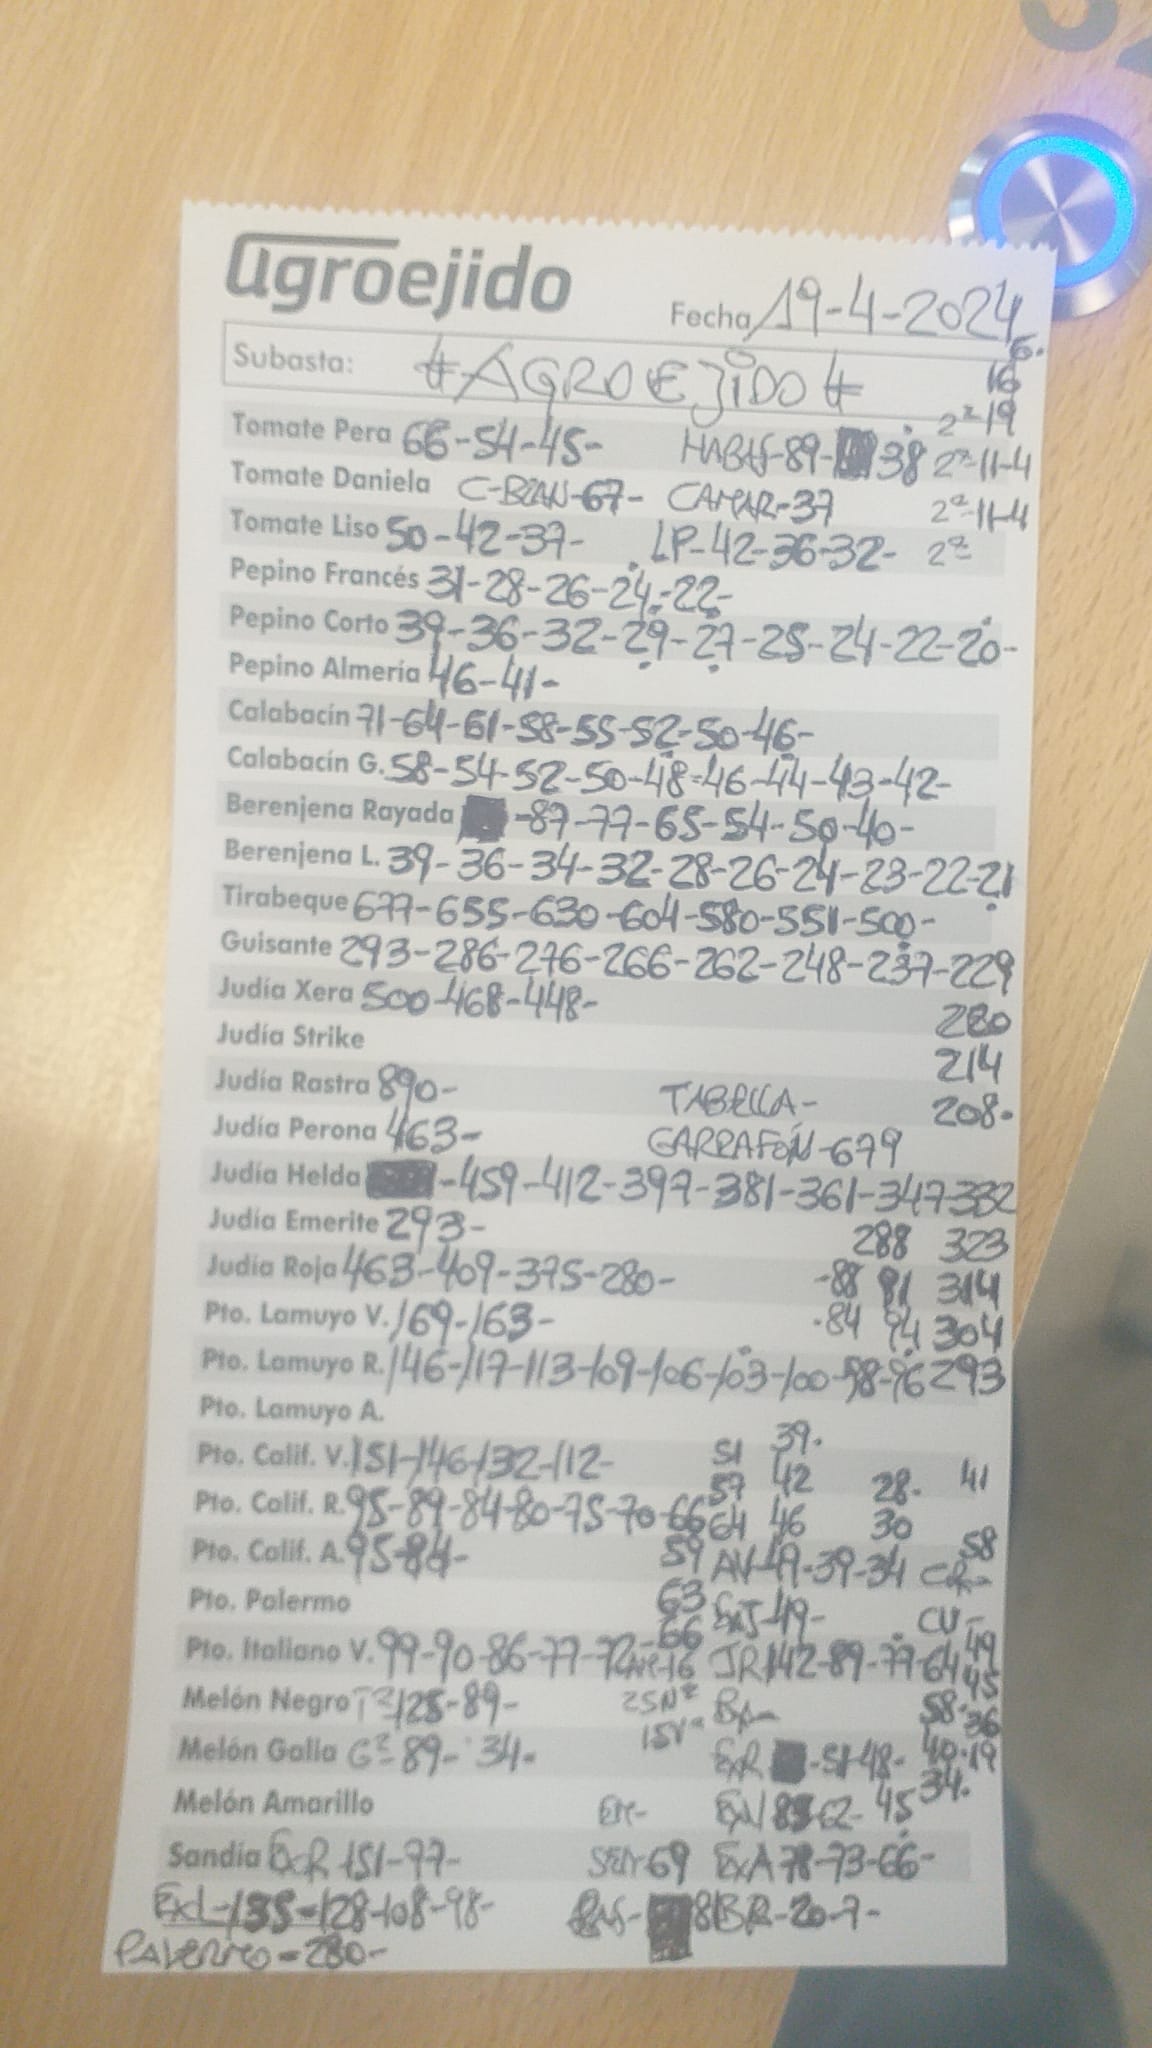 agroejido
Fecha 19-4-2024
6.
Subasta: #AGROEJIDO#
16
2ª 19
Tomate Pera 66-54-45- HABAS-89- 38 2ª-11-4
Tomate Daniela C-BLAN-67- CAMAR-37 2ª-11-4
Tomate Liso 50-42-37- LP-42-36-32- 2ª
Pepino Francés 31-28-26-24-22-
Pepino Corto 39-36-32-29-27-25-24-22-20-
Pepino Almería 46-41-
Calabacín 71-64-61-58-55-52-50-46-
Calabacín G. 58-54-52-50-48-46-44-43-42-
Berenjena Rayada -87-77-65-54-50-40-
Berenjena L. 39-36-34-32-28-26-24-23-22-21
Tirabeque 677-655-630-604-580-551-500-
Guisante 293-286-276-266-262-248-237-229
Judía Xera 500-468-448- 220
Judía Strike 214
Judía Rastra 890- TABELLA- 208-
Judía Perona 463- GARRAFÓN-679
Judía Helda -459-412-397-381-361-347 332
Judía Emerite 293- 288 323
Judía Roja 463-409-375-280- -88 91 314
Pto. Lamuyo V. 169-163- -84 94 304
Pto. Lamuyo R. 146-117-113-109-106-103-100-98-96 293
Pto. Lamuyo A.
Pto. Calif. V. 151-146-132-112- 51 39.
57 42 28- 41
Pto. Calif. R. 95-89-84-80-75-70-66 64 46 30
Pto. Calif. A. 95-84- 59 AV-49-39-34 CR- 58
Pto. Palermo 63 49- CU-
Pto. Italiano V. 99-90-86-77-72-66 16 JR 142-89-77-64 49
45
Melón Negro Tª 125-89- 25Nª BA- 58- 36
15Vª
Melón Galia Gª 89- 34- ExR -51-48- 40-19
34.
Melón Amarillo EM- ExV 62- 45
Sandía 151-97- SEM-69 ExA 78-73-66-
ExL-135-128-108-98- 81 BR-20-7-
PALERMO-280-